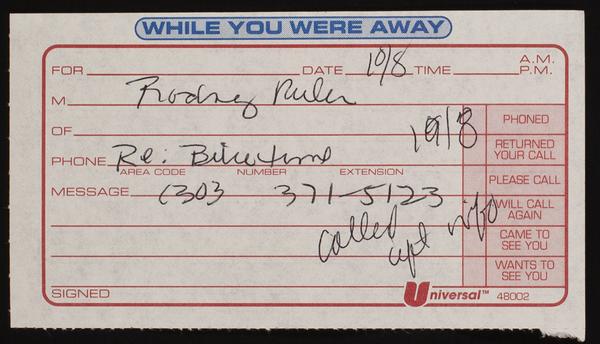 WHILE YOU WERE AWAY
FOR DATE 10/8 TIME A.M. P.M.
M Rodney Ruler
OF 10/8 PHONED
PHONE Re: RETURNED YOUR CALL
AREA CODE NUMBER EXTENSION
MESSAGE (303 371-5123 PLEASE CALL
called WILL CALL AGAIN
CAME TO SEE YOU
WANTS TO SEE YOU
SIGNED Universal™ 48002